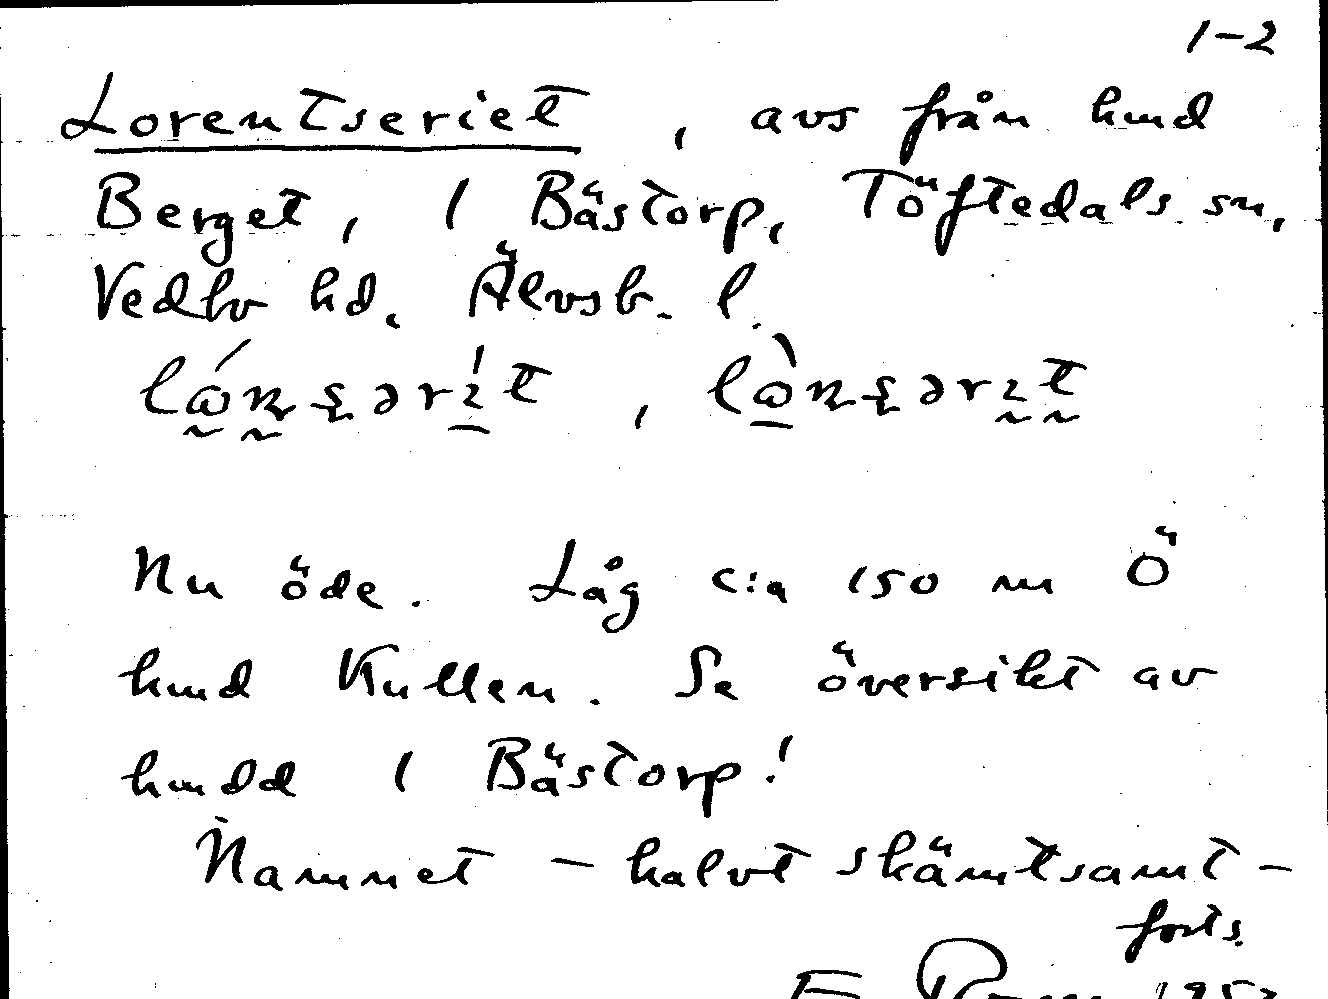 1-2
Lorentseriet , avs från hmd
Berget, i Bästorp, Töftedals sn,
Vedbo hd. Älvsb. l.
Nu öde. Låg c:a 150 m Ö
hmd Kullen. Se översikt av
hmdd i Bästorp!
Namnet — halvt skämtsamt —
forts.